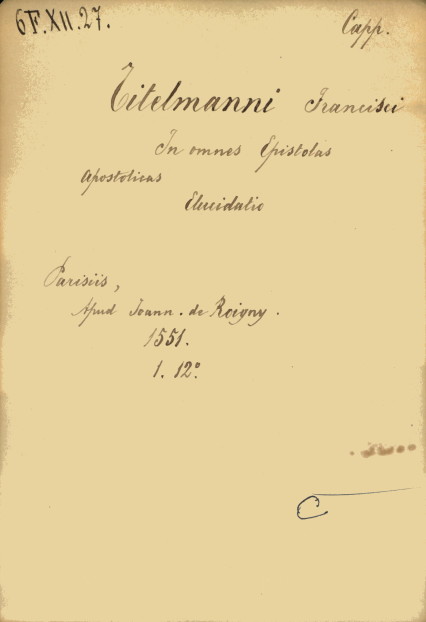 6F.XII.27.
Capp.
Titelmanni Francisci
In omnes Epistolas
Apostolicas
Elucidatio
Parisiis,
Apud Joann. de Roigny.
1551.
1. 12º
C